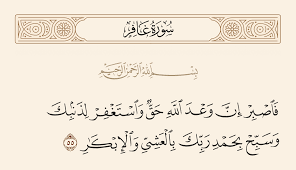 سُورَةُ غَافِرٍ
بِسْمِ اللَّهِ الرَّحْمَٰنِ الرَّحِيمِ
فَاصْبِرْ إِنَّ وَعْدَ اللَّهِ حَقٌّ وَاسْتَغْفِرْ لِذَنبِكَ
وَسَبِّحْ بِحَمْدِ رَبِّكَ بِالْعَشِيِّ وَالْإِبْكَارِ ٥٥